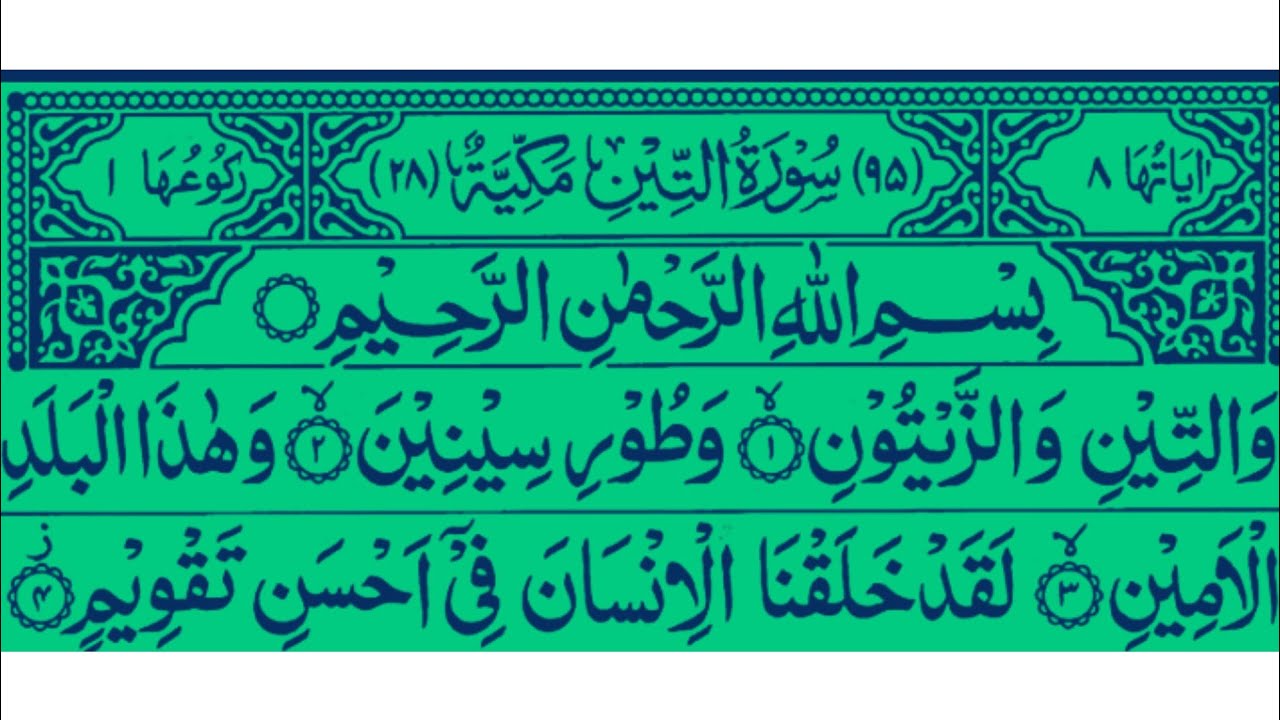 اٰيَاتُهَا ٨ (٩٥) سُوْرَةُ التِّيْنِ مَكِّيَّةٌ (٢٨) رُكُوْعُهَا ١
بِسْمِ اللّٰهِ الرَّحْمٰنِ الرَّحِيْمِ
وَالتِّيْنِ وَالزَّيْتُوْنِ ۙ﴿١﴾ وَطُوْرِ سِيْنِيْنَ ۙ﴿٢﴾ وَهٰذَا الْبَلَدِ
الْاَمِيْنِ ۙ﴿٣﴾ لَقَدْ خَلَقْنَا الْاِنْسَانَ فِيْٓ اَحْسَنِ تَقْوِيْمٍ ؗ﴿۴﴾